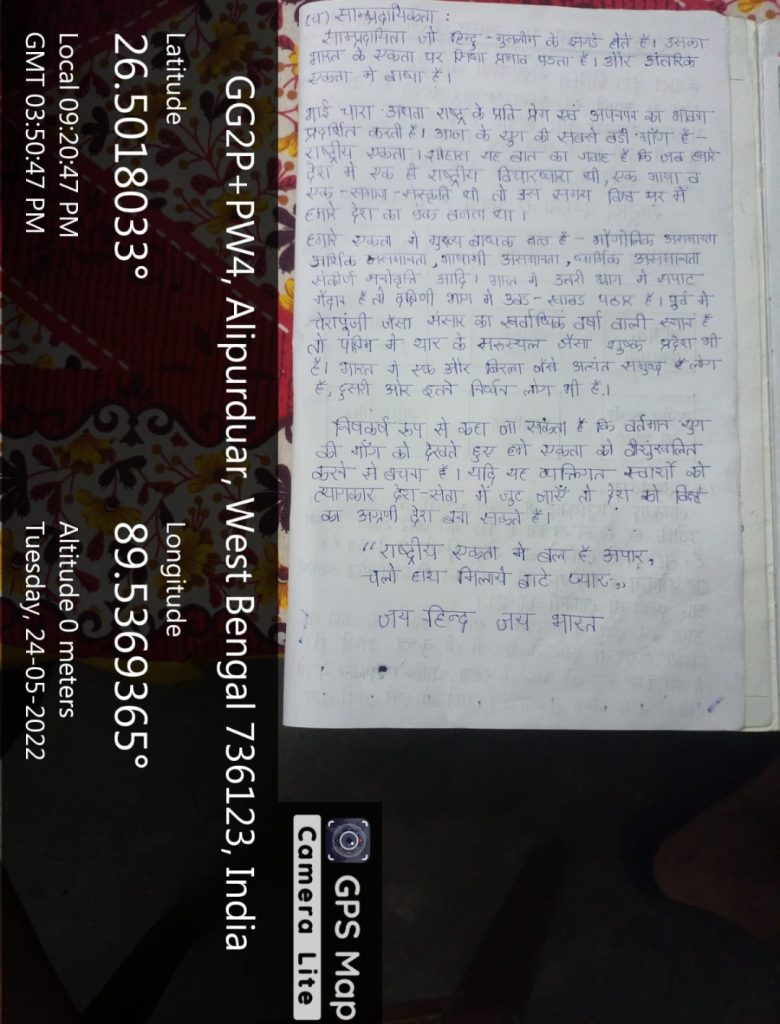 (घ) साम्प्रदायिकता :
साम्प्रदायिता जो हिन्दु - मुसलीम के झगडे होते है। उसका
भारत के एकता पर सिधा प्रभाव पडता है। और आंतरिक
एकता मे बाधा है।
भाई चारा अथवा राष्ट्र के प्रति प्रेम एवं अपनेपन का भावना
प्रदर्शित करती है। आज के युग की सबसे बडी माँग है -
राष्ट्रीय एकता। यह बात का गवाह है कि जब हमारे
देश मे एक ही राष्ट्रीय विचारधारा थी, एक भाषा व
एक - समाज - संस्कृति थी तो उस समय विश्व भर में
हमारे देश का डंका बजता था।
हमारे एकता मे मुख्य बाधक तत्व है - भौगोलिक असमानता
आर्थिक असमानता, भाषायी असमानता, धार्मिक असमानता
संकीर्ण मनोवृति आदि। भारत मे उतरी भाग मे सपाट
मैदान है तो दक्षिणी भाग मे उबड - खाबड पठार है। पुर्व मे
चेरापुंजी जैसा संसार का सर्वाधिक वर्षा वाली स्थान है
तो पश्चिम मे थार के मरूस्थल जैसा शुष्क प्रदेश भी
है। भारत मे एक और बिरला जैसे अत्यंत समृद्ध लोग
है, दुसरी ओर इतने निर्धन लोग भी है।
निषकर्ष रूप से कहा जा सकता है कि वर्तमान युग
की माँग को देखते हुए हमे एकता को
करने से बचना है। यदि यह व्यक्तिगत स्वार्थो को
त्यागकर देश - सेवा मे जुट जाएँ तो देश को विश्व
का अग्रणी देश बना सकते है।
“राष्ट्रीय एकता मे बल है अपार,
चलो हाथ मिलाये बाटे प्यार”
जय हिन्द जय भारत
GPS Map
Camera Lite
GG2P+PW4, Alipurduar, West Bengal 736123, India
Latitude
26.5018033°
Longitude
89.5369365°
Local 09:20:47 PM
GMT 03:50:47 PM
Altitude 0 meters
Tuesday, 24-05-2022